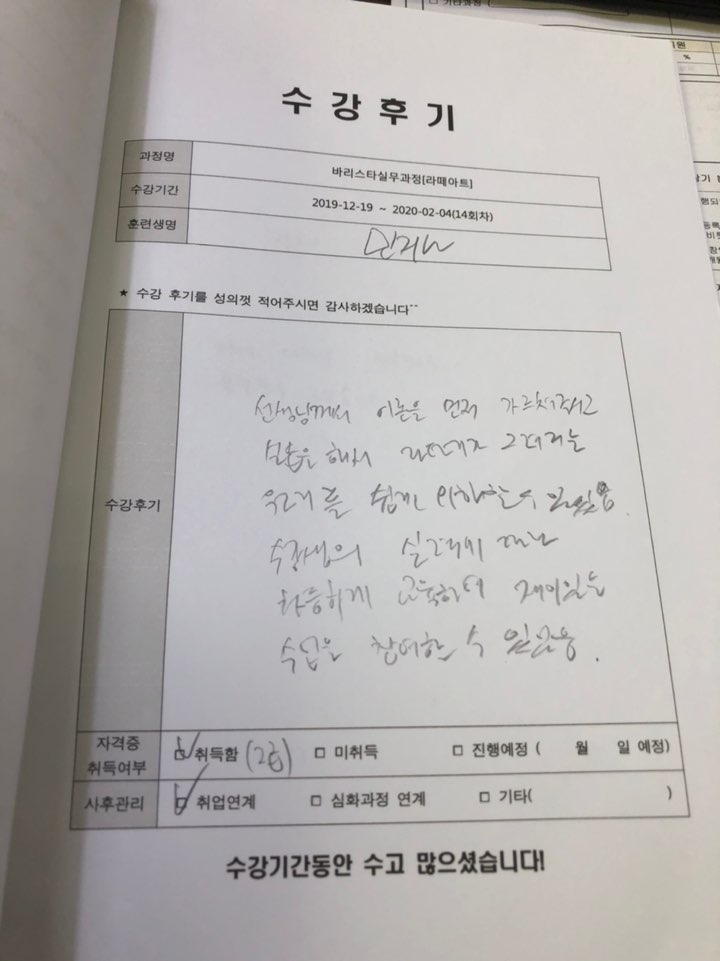 □ 기타과정 (
%
수 강 후 기
과정명 바리스타실무과정[라떼아트]
수강기간 2019-12-19 ~ 2020-02-04(14회차)
훈련생명
★ 수강 후기를 성의껏 적어주시면 감사하겠습니다^^
수강후기
선생님께서 이론을 먼저 가르쳐주고
실습을 해서
쉽게 이해할 수 있었음.
수강생의 실력에 따라
차등하게 교육하여 재미있는
수업을 참여할 수 있었음.
자격증 취득여부 □ 취득함 (2급) □ 미취득 □ 진행예정 ( 월 일 예정)
사후관리 □ 취업연계 □ 심화과정 연계 □ 기타( )
수강기간동안 수고 많으셨습니다!